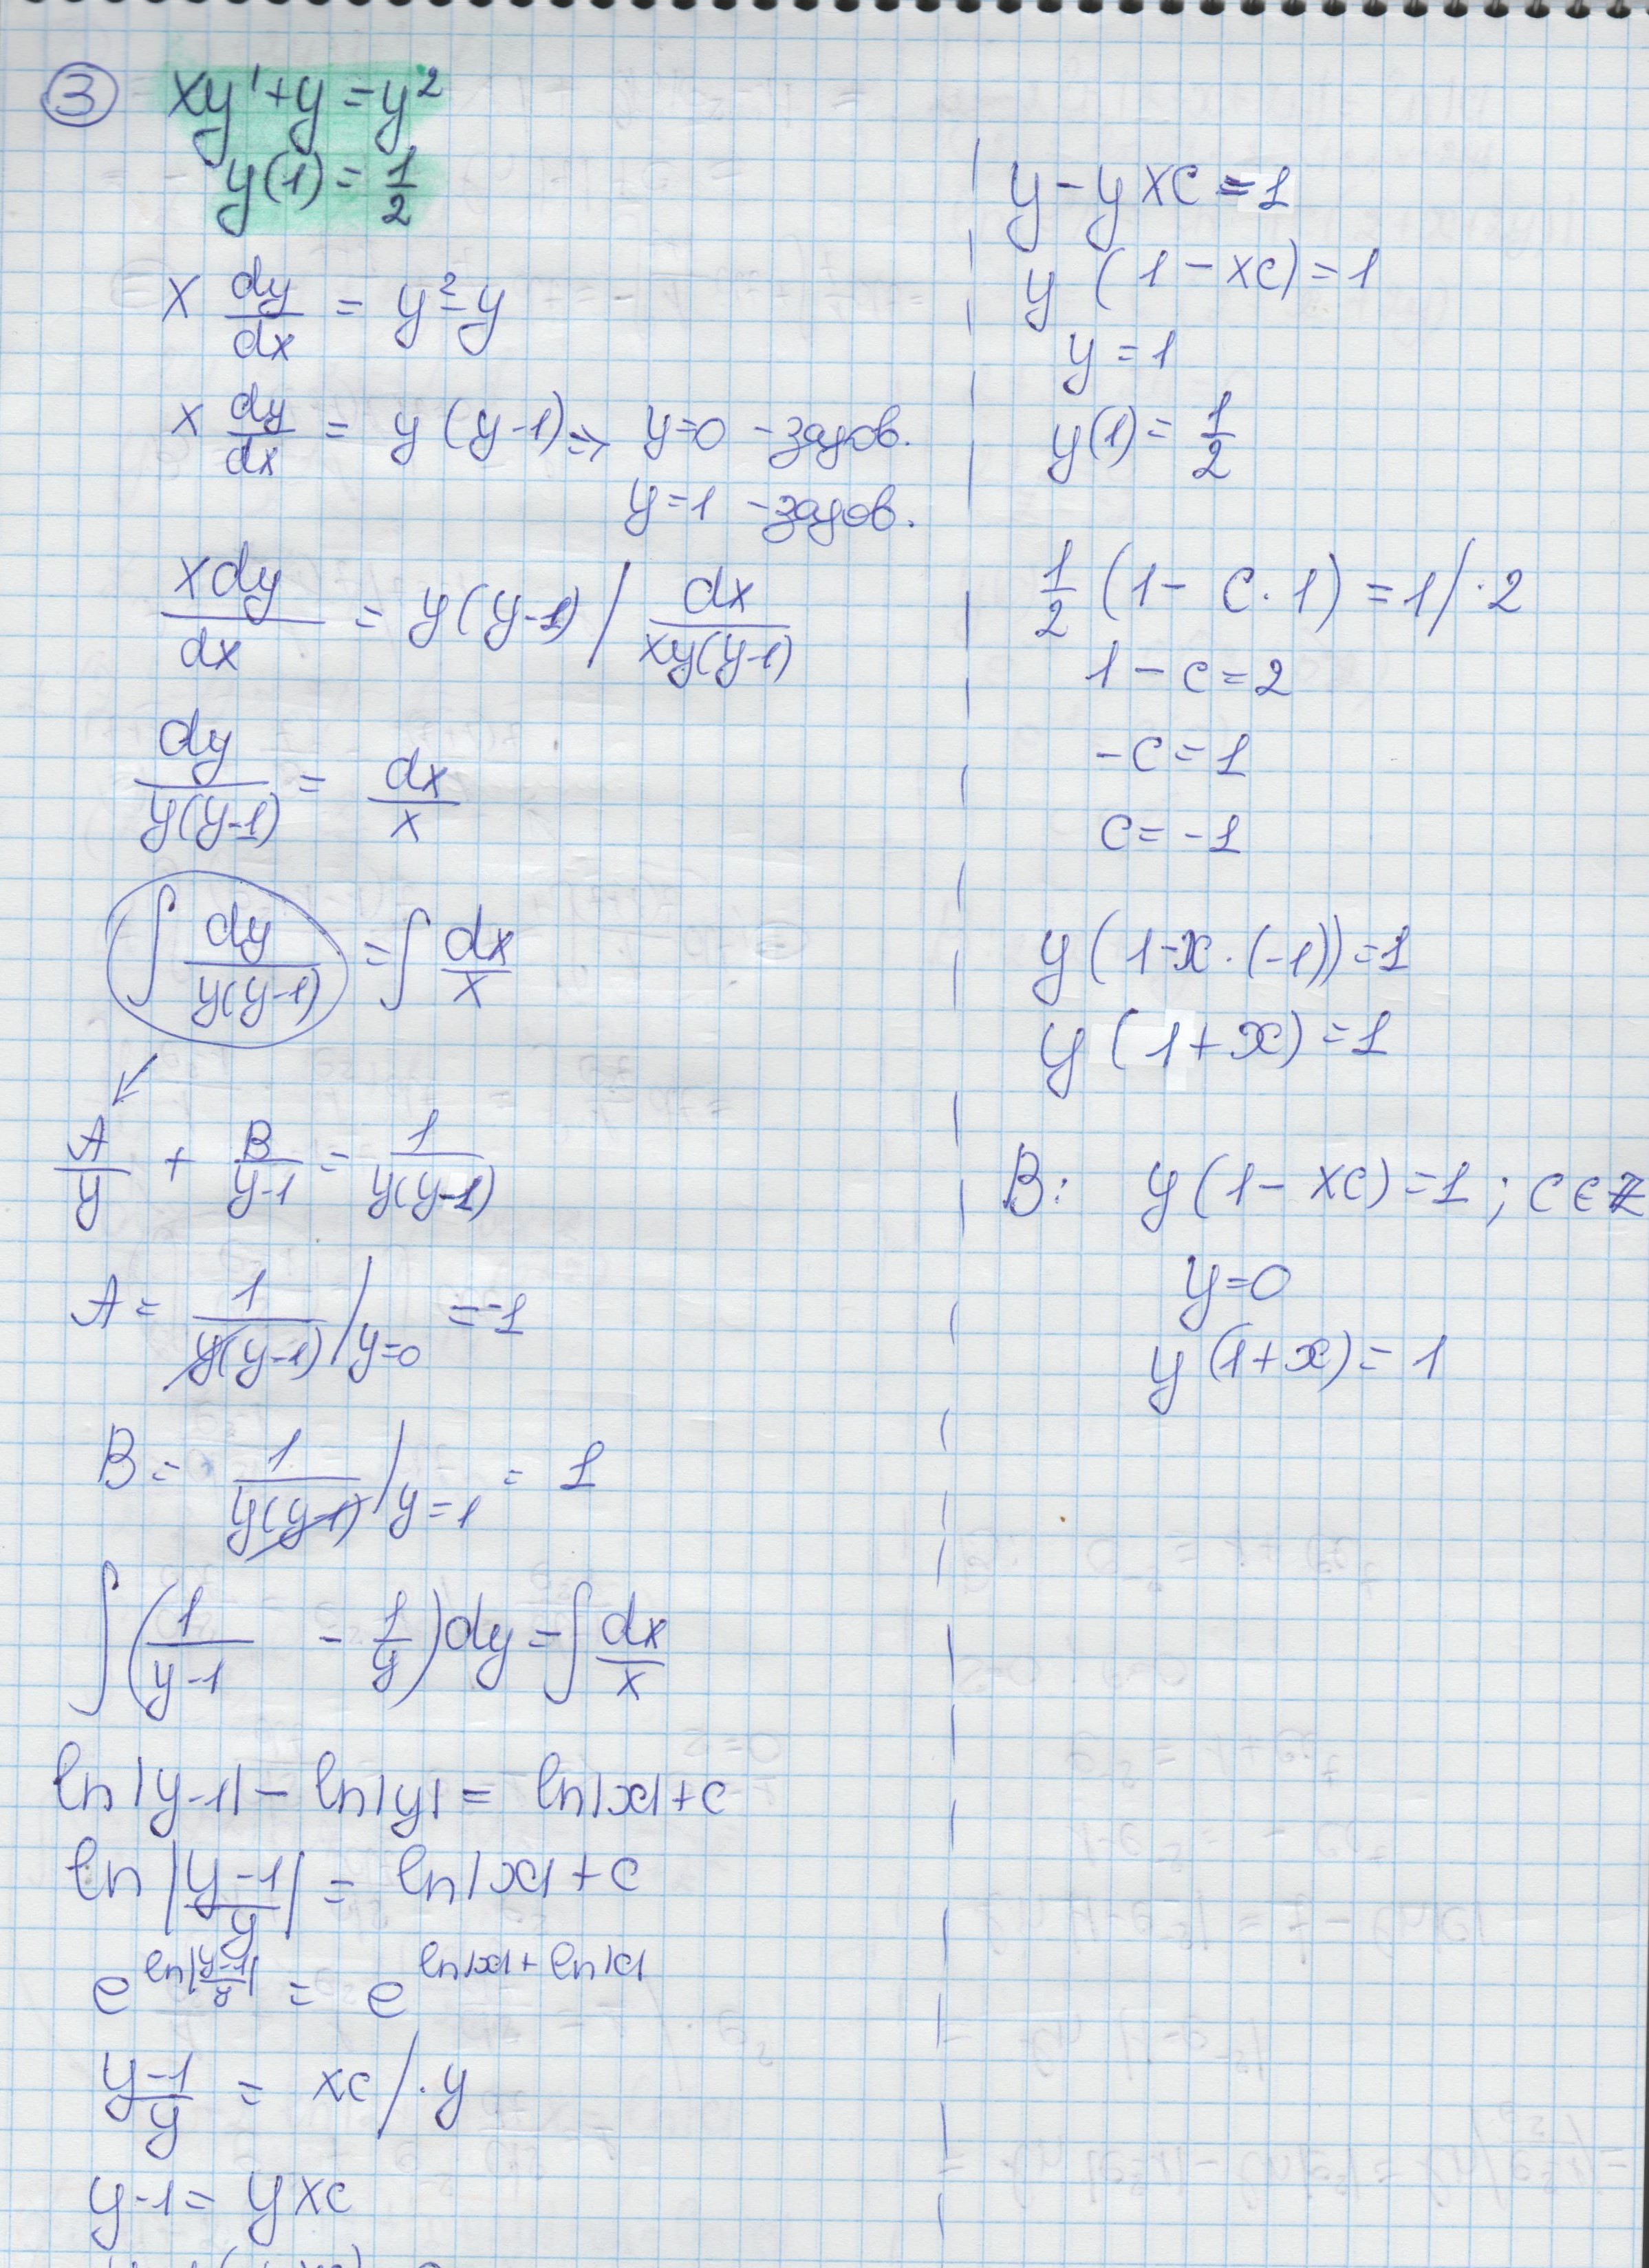 ③ xy' + y = y²
y(1) = 1/2
x dy/dx = y² - y
x dy/dx = y(y-1) => y=0 - задов.
y=1 - задов.
xdy/dx = y(y-1) / dx/xy(y-1)
dy/y(y-1) = dx/x
∫ dy/y(y-1) = ∫ dx/x
↙
A/y + B/y-1 = 1/y(y-1)
A = 1/y(y-1) /y=0 = -1
B = 1/y(y-1) /y=1 = 1
∫(1/y-1 - 1/y)dy = ∫ dx/x
ln|y-1| - ln|y| = ln|x| + c
ln|y-1/y| = ln|x| + c
e^ln|y-1/y| = e^ln|x| + ln|c|
y-1/y = xc / ·y
y-1 = yxc
y - yxc = 1
y (1 - xc) = 1
y = 1
y(1) = 1/2
1/2 (1 - c·1) = 1 /·2
1 - c = 2
-c = 1
c = -1
y(1-x·(-1)) = 1
y (1+x) = 1
В: y(1 - xc) = 1 ; c ∈ Z
y=0
y(1+x) = 1